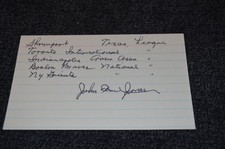 Shreveport Texas League
Toronto International "
Indianapolis Amer Assn "
Boston Braves National "
NY Giants "
John